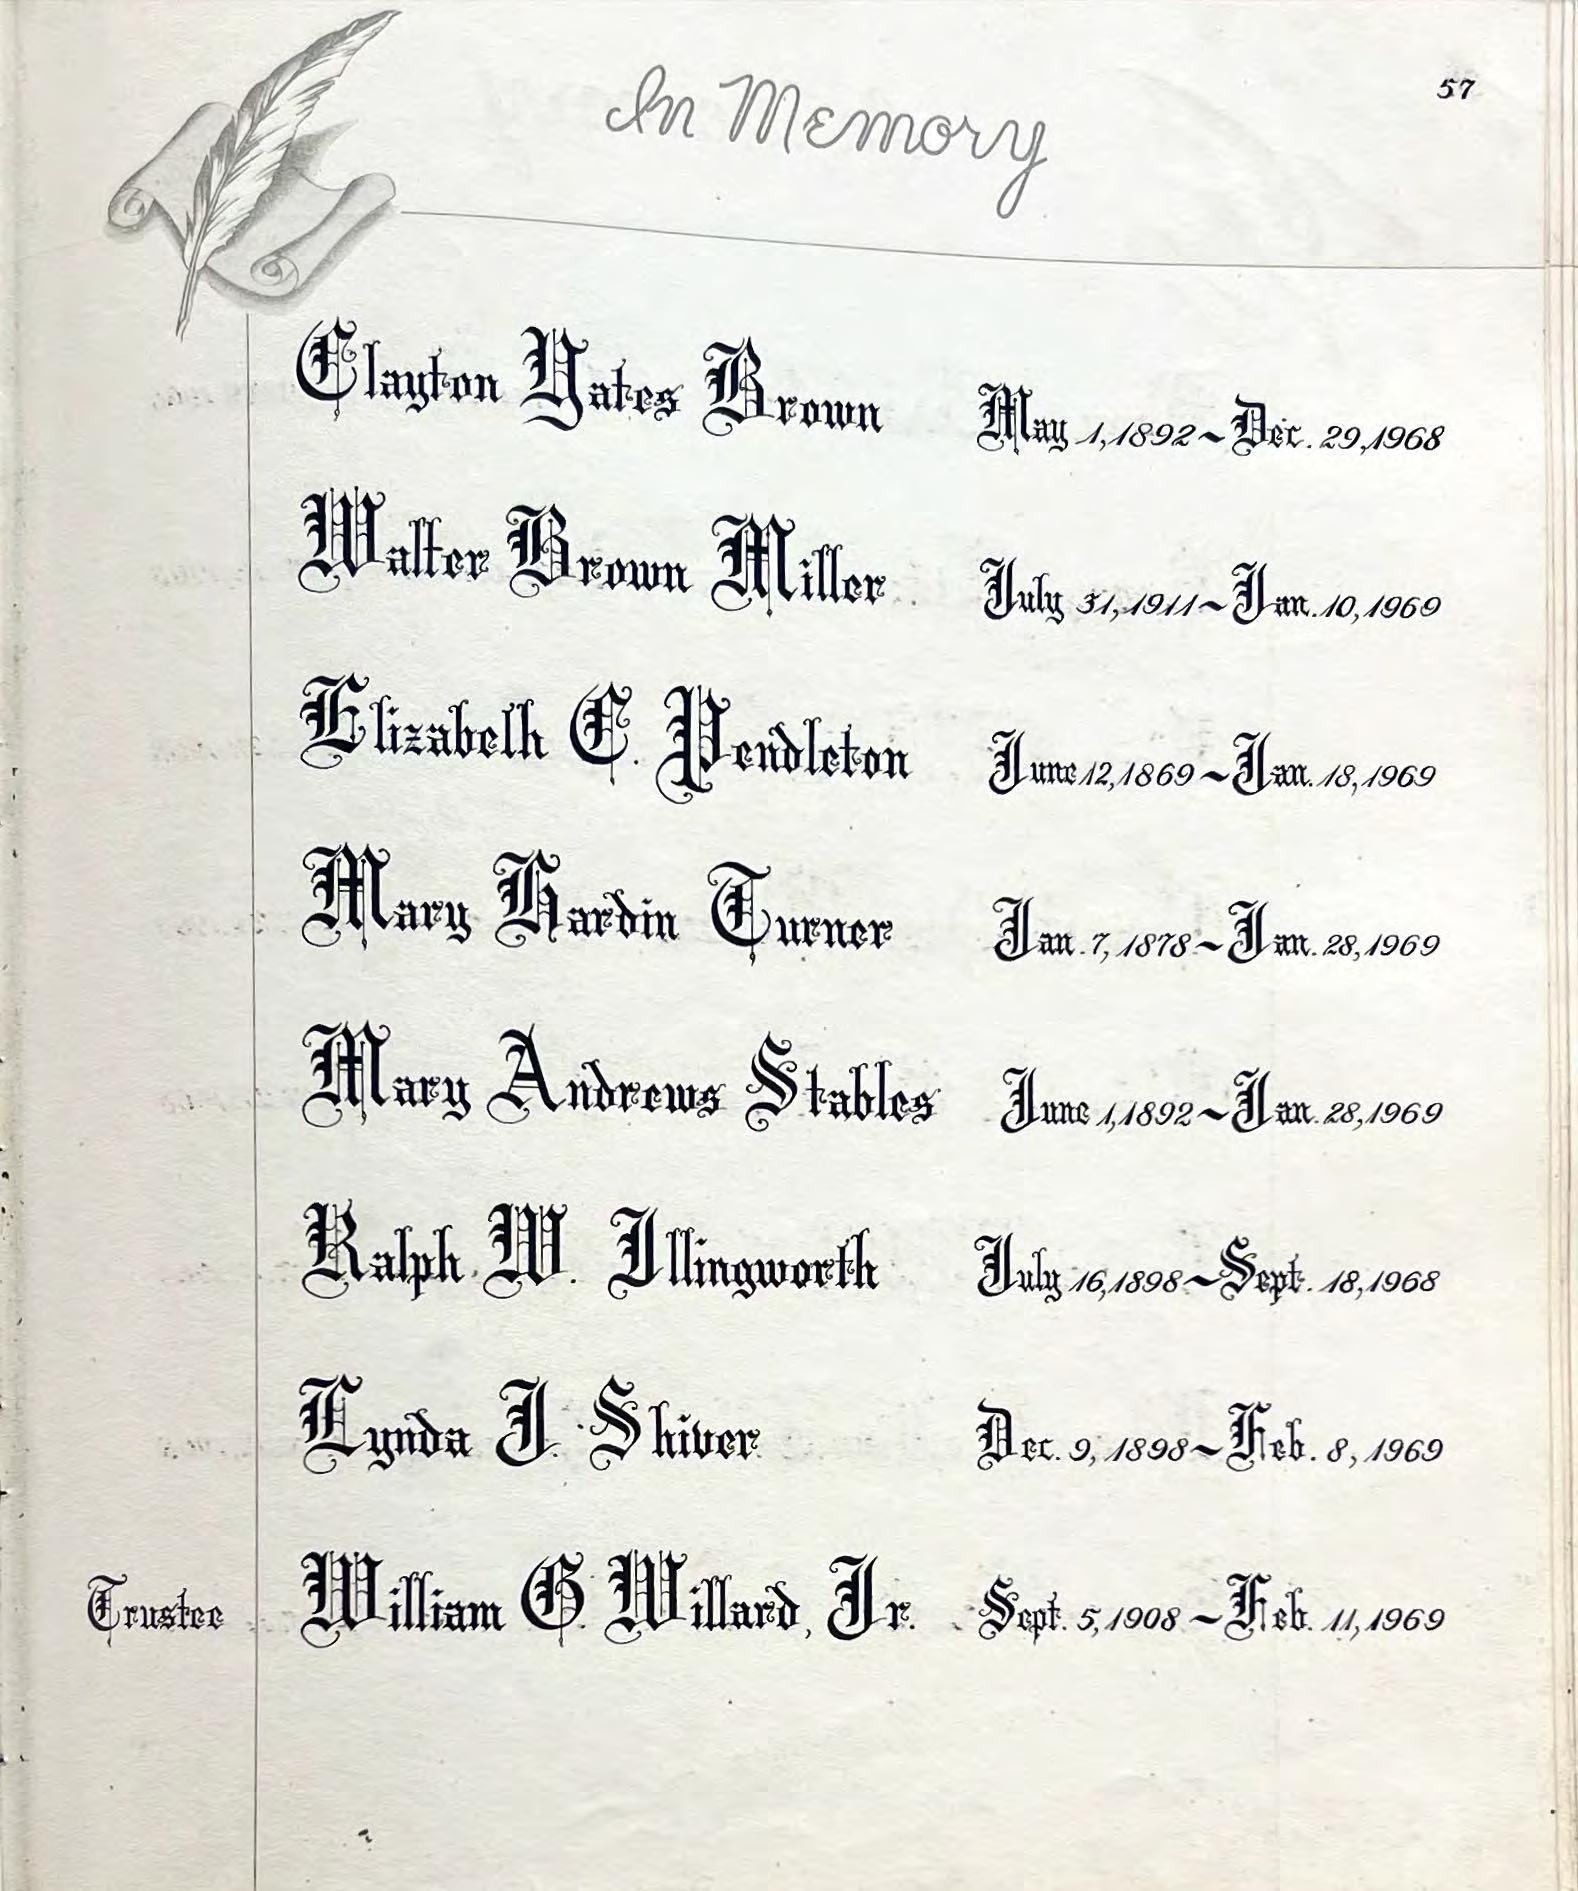 57
In Memory
Clayton Yates Brown May 1, 1892 ~ Dec. 29, 1968
Walter Brown Miller July 31, 1911 ~ Jan. 10, 1969
Elizabeth C. Pendleton June 12, 1869 ~ Jan. 18, 1969
Mary Hardin Turner Jan. 7, 1878 ~ Jan. 28, 1969
Mary Andrews Stables June 1, 1892 ~ Jan. 28, 1969
Ralph W. Illingworth July 16, 1898 ~ Sept. 18, 1968
Lynda J. Shiver Dec. 9, 1898 ~ Feb. 8, 1969
Trustee William G. Willard, Jr. Sept. 5, 1908 ~ Feb. 11, 1969